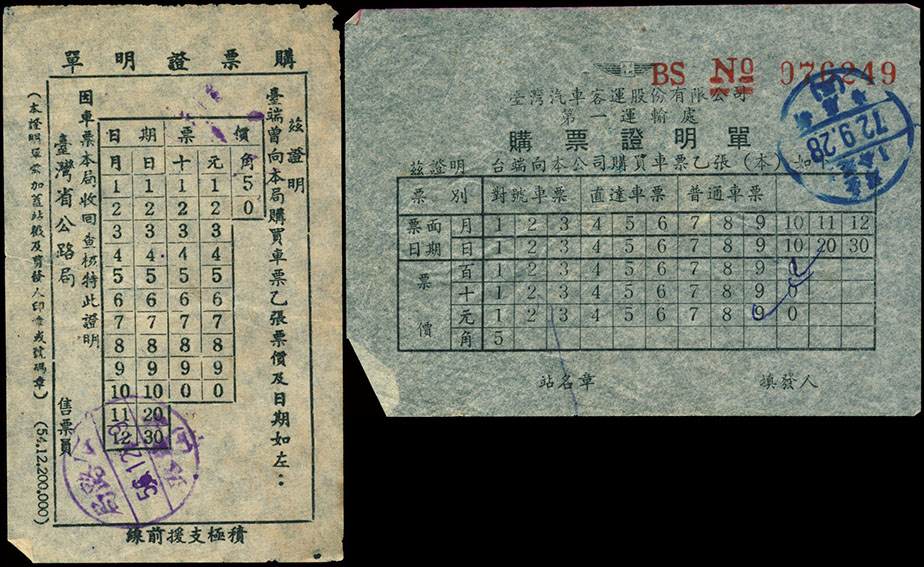 購票證明單
茲證明
臺端曾向本局購買車票乙張票價及日期如左：
日 期 票 價
月 日 十 元 角
1 1 1 1 5
2 2 2 2 0
3 3 3 3
4 4 4 4
5 5 5 5
6 6 6 6
7 7 7 7
8 8 8 8
9 9 9 9
10 10 0 0
11 20
12 30
因車票本局收回查核特此證明
臺灣省公路局 售票員
加蓋站戳及剪發人印章或號碼章) (54.12.200.000)
積極支援前線
BS No 076249
臺灣汽車客運股份有限公司
第一運輸處
購票證明單
茲證明 台端向本公司購買車票乙張(本)如
72.9.28
票 別 對號車票 直達車票 普通車票
票面 月 1 2 3 4 5 6 7 8 9 10 11 12
日期 日 1 2 3 4 5 6 7 8 9 10 20 30
票價 百 1 2 3 4 5 6 7 8 9 0
十 1 2 3 4 5 6 7 8 9 0
元 1 2 3 4 5 6 7 8 9 0
角 5
站名章 填發人